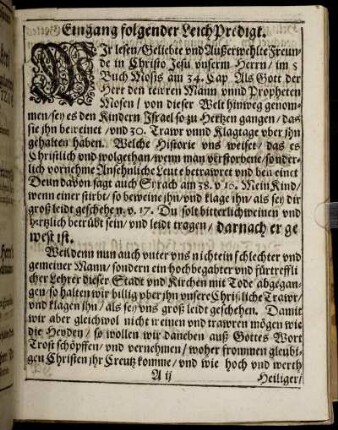 Eingang folgender Leich Predigt.
WIr lesen / Geliebte vnd Außerwehlte Freun-
de in Christo Jesu vnserm Herrn / im 5
Buch Mosis am 34. Cap. Als Gott der
Herr den tewren Mann vnnd Propheten
Mosen / von dieser Welt hinweg genom-
men / sey es den Kindern Israel so zu Hertzen gangen / das
sie jhn beweinet / vnd 30. Trawr vnnd Klagtage vber jhn
gehalten haben. Welche Historie vns weiset / das es
Christlich vnd wolgethan / wenn man verstorbene / sonder-
lich vornehme Ansehnliche Leute betrawret vnd beweinet
Denn davon sagt auch Syrach am 38. v 16. Mein Kind /
wenn einer stirbt / so beweine jhn / vnd klage jhn / als sey dir
groß leidt geschehen. v. 17. Du solt bitterlich weinen vnd
hertzlich betrübt sein / vnd leidt tragen / darnach er ge
west ist.
Weil denn nun auch vnter vns nicht ein schlechter vnd
gemeiner Mann / sondern ein hochbegabter vnd fürtreffli-
cher Lehrer dieser Stadt vnd Kirchen mit Tode abgegan-
gen / so halten wir billig vber jhn vnsere Christliche Trawr /
vnd klagen jhn / als sey vns groß leidt geschehen. Damit
wir aber gleichwol nicht weinen vnd trawren mögen wie
die Heyden / so wollen wir daneben auß Gottes Wort
Trost schöpffen / vnd vernehmen / woher frommen gleubi-
gen Christen jhr Creutz komme / vnd wie hoch vnd werth
A ij
Heiliger /